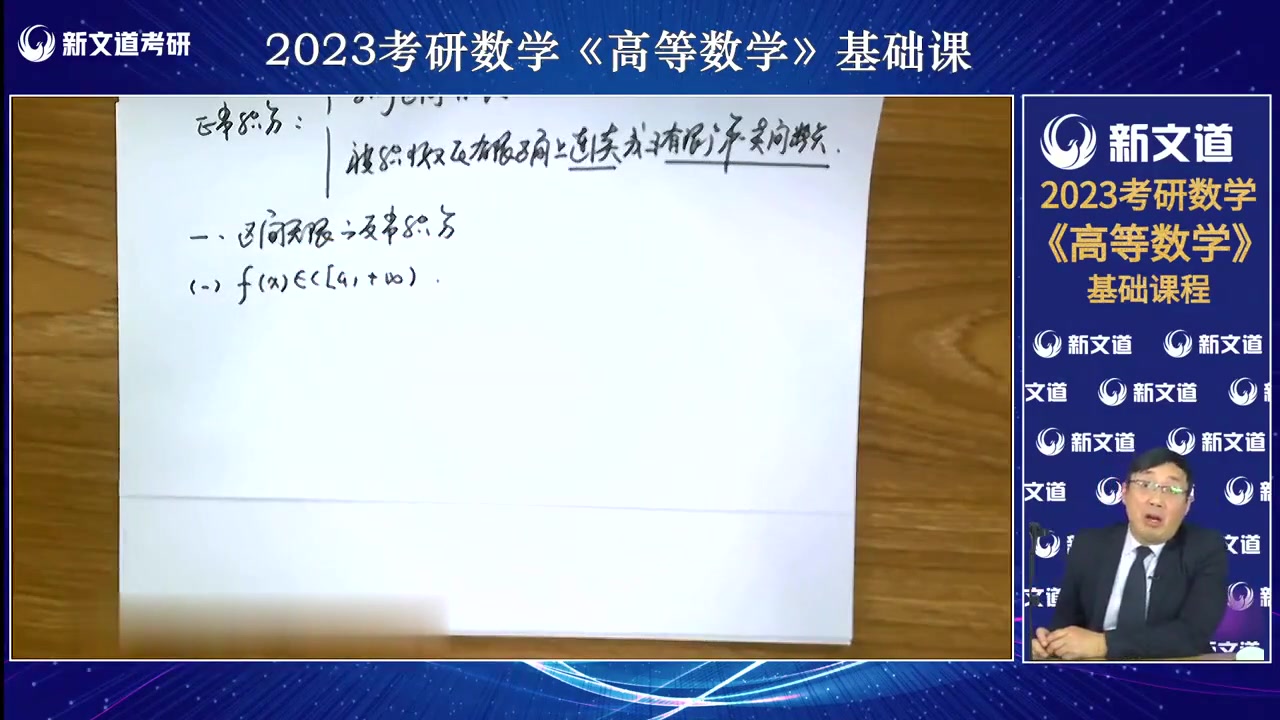 新文道考研
2023考研数学《高等数学》基础课
正常积分:
被积函数在有限区间上连续或有有限个第一类间断点.
一、区间无限之反常积分
(一) f(x)∈C[a,+∞).
新文道
2023考研数学
《高等数学》
基础课程
新文道 新文道
文道 新文道
新文道 新文道
文道
文道
文道
新文道